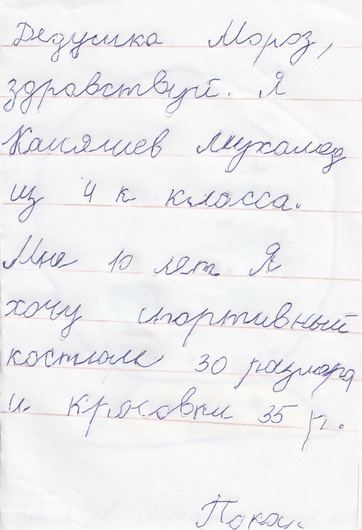 Дедушка Мороз,
здравствуй. Я
Каияшев Мухамад
из 4 к класса.
Мне 10 лет. Я
хочу спортивный
костюм 30 размера
и кросовки 35 р.
Пока.